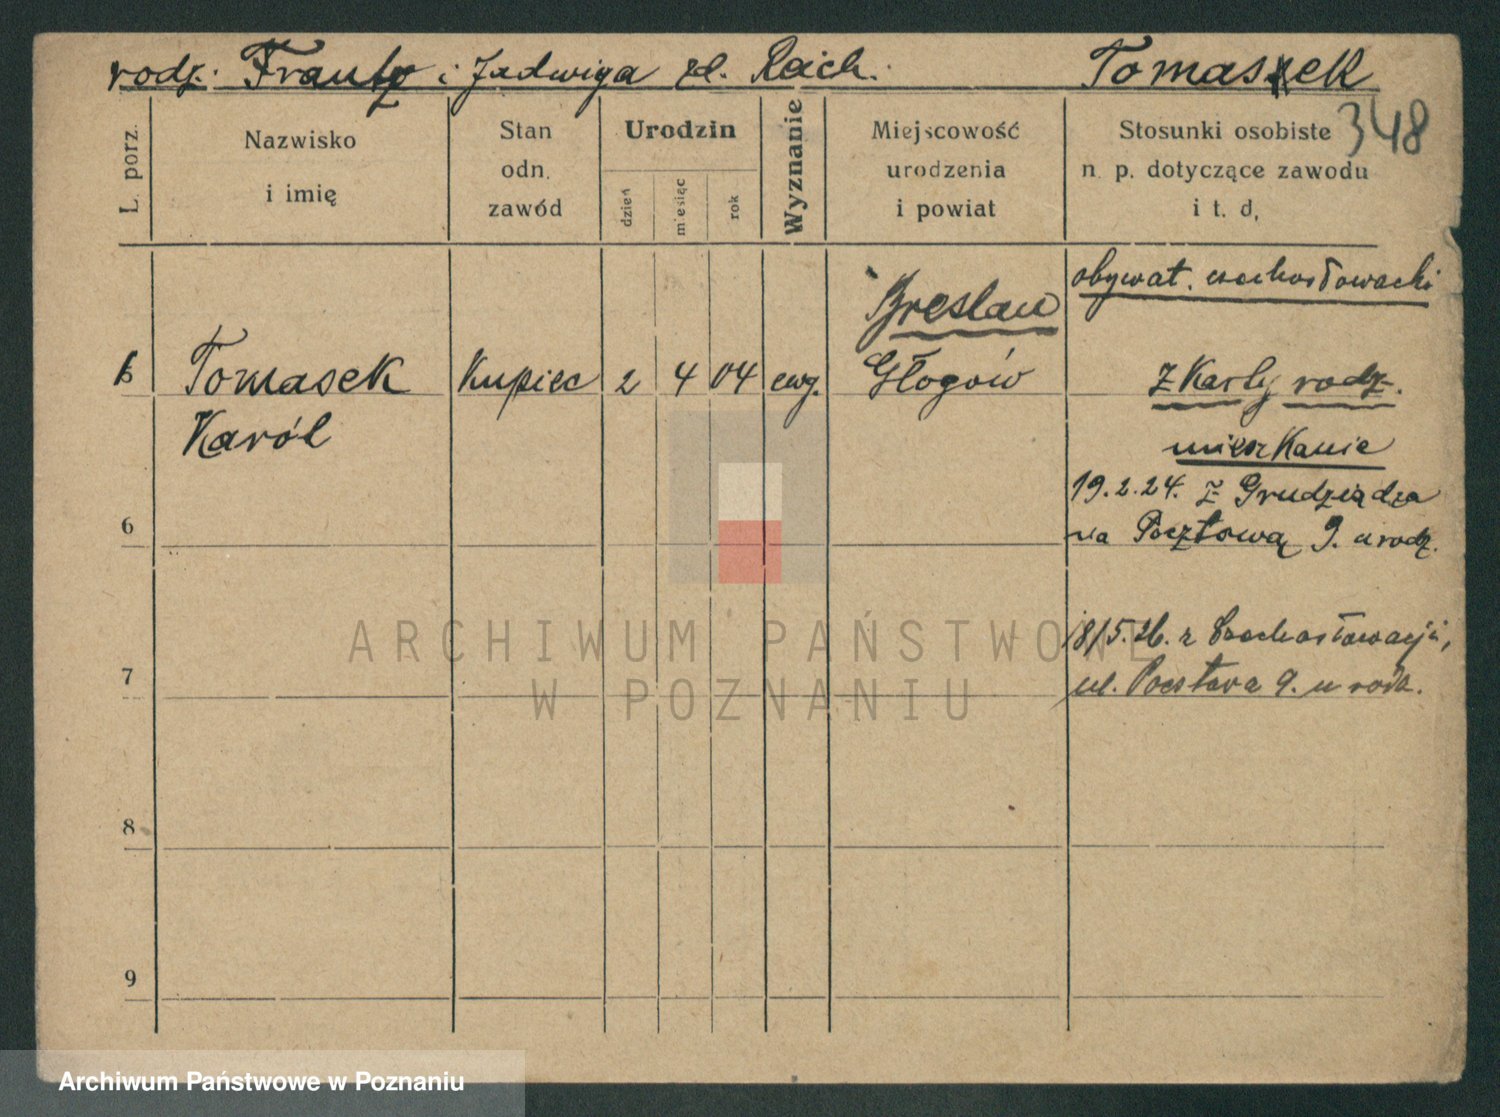 rodz. Frantz i Jadwiga zd. Raich.
Tomasek
348
L. porz.
Nazwisko
i imię
Stan
odn.
zawód
Urodzin
dzień
miesiąc
rok
Wyznanie
Miejscowość
urodzenia
i powiat
Stosunki osobiste
n. p. dotyczące zawodu
i t. d.
obywat. czechosłowacki
Breslau
Tomasek Kupiec 2 4 04 ewg. Głogów
Karól
z rodz.
mieszkanie
19.2.24. z Grudziądza
na Pocztową 9. u rodz.
6
18/5.26. z Czechosłowacji,
ul. Pocztowa 9. u rodz.
7
8
9
ARCHIWUM PAŃSTWOWE
W POZNANIU
Archiwum Państwowe w Poznaniu